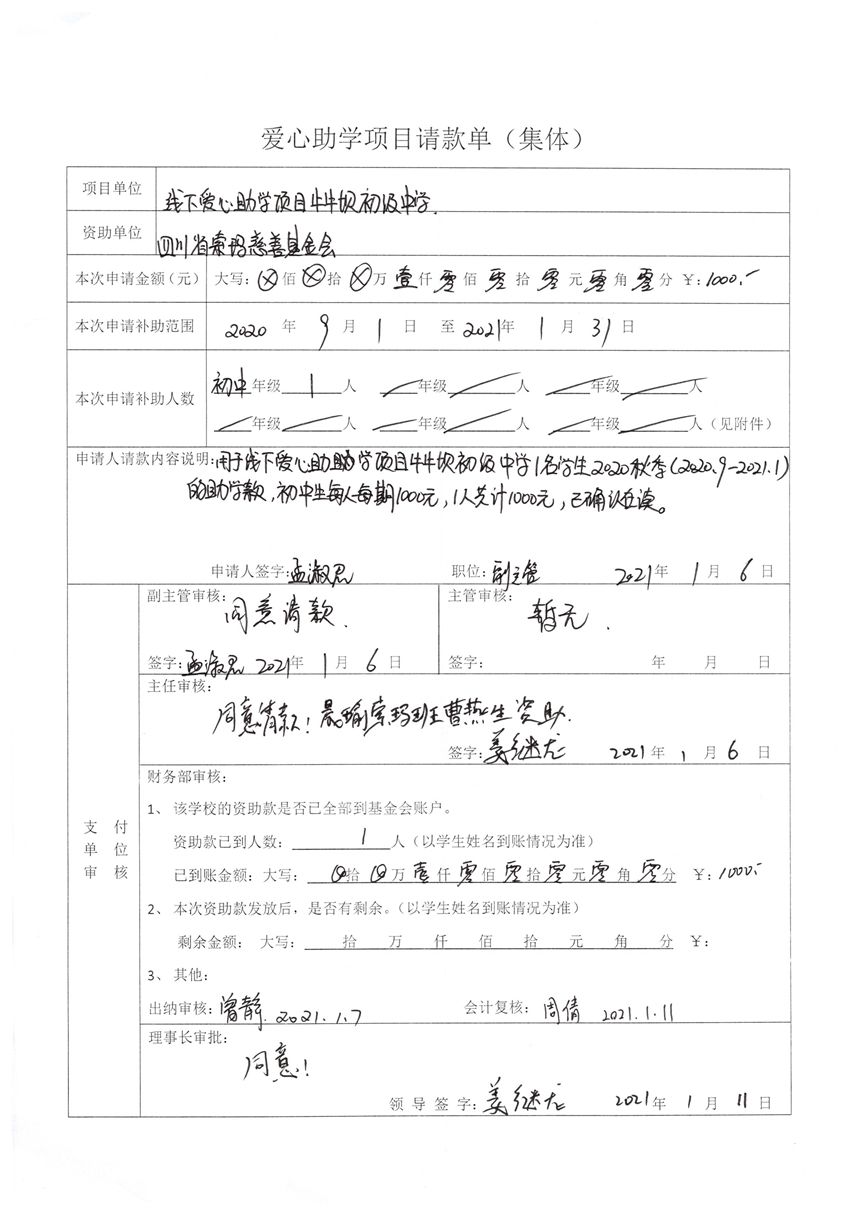 爱心助学项目请款单（集体）
项目单位 线下爱心助学项目牛牛坝初级中学.
资助单位 四川省索玛慈善基金会
本次申请金额（元） 大写：⊗佰⊗拾⊗万壹仟零佰零拾零元零角零分 ￥：1000.-
本次申请补助范围 2020年9月1日至2021年1月31日
本次申请补助人数 初中年级1人 年级 人 年级 人
年级 人 年级 人 年级 人（见附件）
申请人请款内容说明：用于线下爱心助学项目牛牛坝初级中学1名学生2020秋季（2020.9-2021.1）
的助学款，初中生每人每期1000元，1人共计1000元，已确认在读。
申请人签字：孟淑君 职位：副主管 2021年1月6日
支付单位审核
副主管审核： 主管审核：
同意请款. 暂无.
签字：孟淑君 2021年1月6日 签字： 年 月 日
主任审核：
同意请款！晨瑜索玛班王曹燕生资助.
签字：姜继尤 2021年1月6日
财务部审核：
1、该学校的资助款是否已全部到基金会账户。
资助款已到人数：1人（以学生姓名到账情况为准）
已到账金额：大写：⊗拾⊗万壹仟零佰零拾零元零角零分 ￥：1000.-
2、本次资助款发放后，是否有剩余。（以学生姓名到账情况为准）
剩余金额： 大写： 拾 万 仟 佰 拾 元 角 分 ￥：
3、其他：
出纳审核：曾静 2021.1.7 会计复核：周倩 2021.1.11
理事长审批：
同意！
领导签字：姜继尤 2021年1月11日